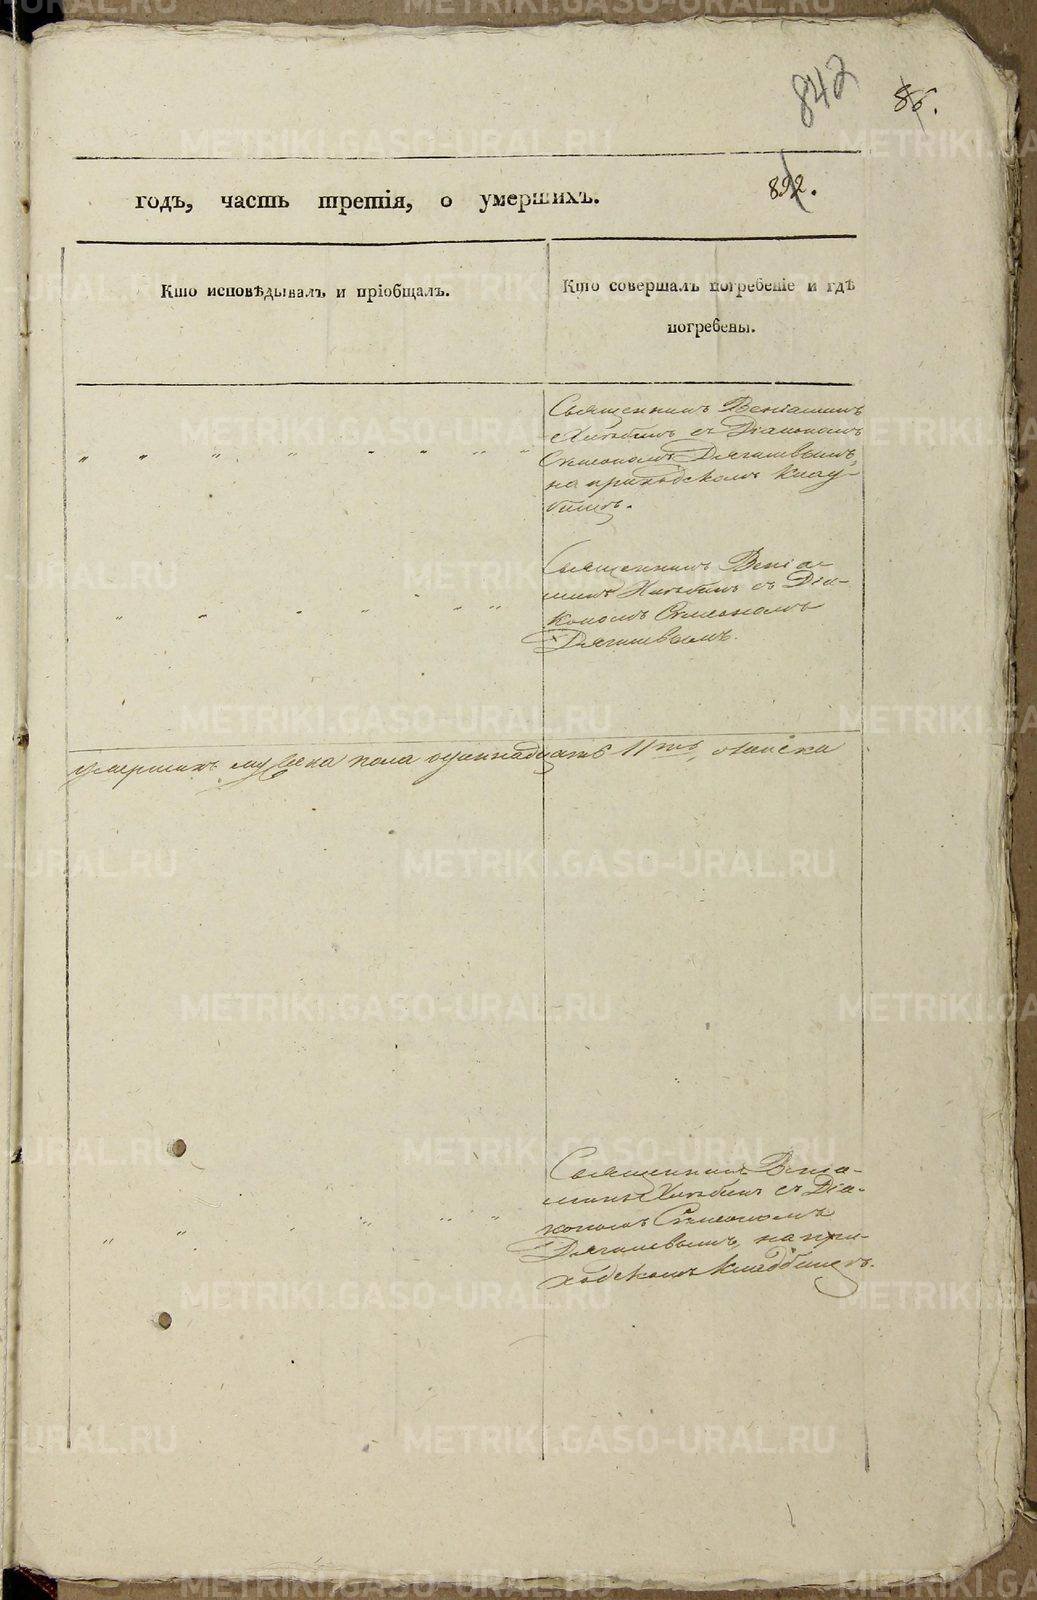 842
86.
годъ, часть третія, о умершихъ.
892.
Кто исповѣдывалъ и пріобщалъ.
Кто совершалъ погребеніе и гдѣ
погребены.
Священникъ Веніаминъ
Хлѣбинъ съ Діакономъ
Симеономъ Дягилевымъ,
на приходскомъ клад-
бищѣ.
Священникъ Веніа-
минъ Хлѣбинъ съ Діа-
кономъ Симеономъ
Дягилевымъ.
умершихъ мужеска пола одиннадцать 11ть
Священникъ Веніа-
минъ Хлѣбинъ съ Діа-
кономъ Симеономъ
Дягилевымъ, на при-
ходскомъ кладбищѣ.
METRIKI.GASO-URAL.RU